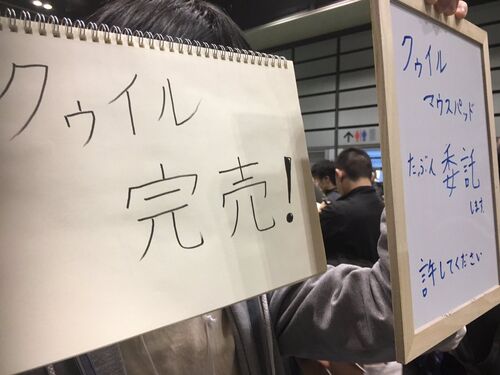 クゥイル
完売!
クゥイル
マウスパッド
たぶん委託
します
許してください